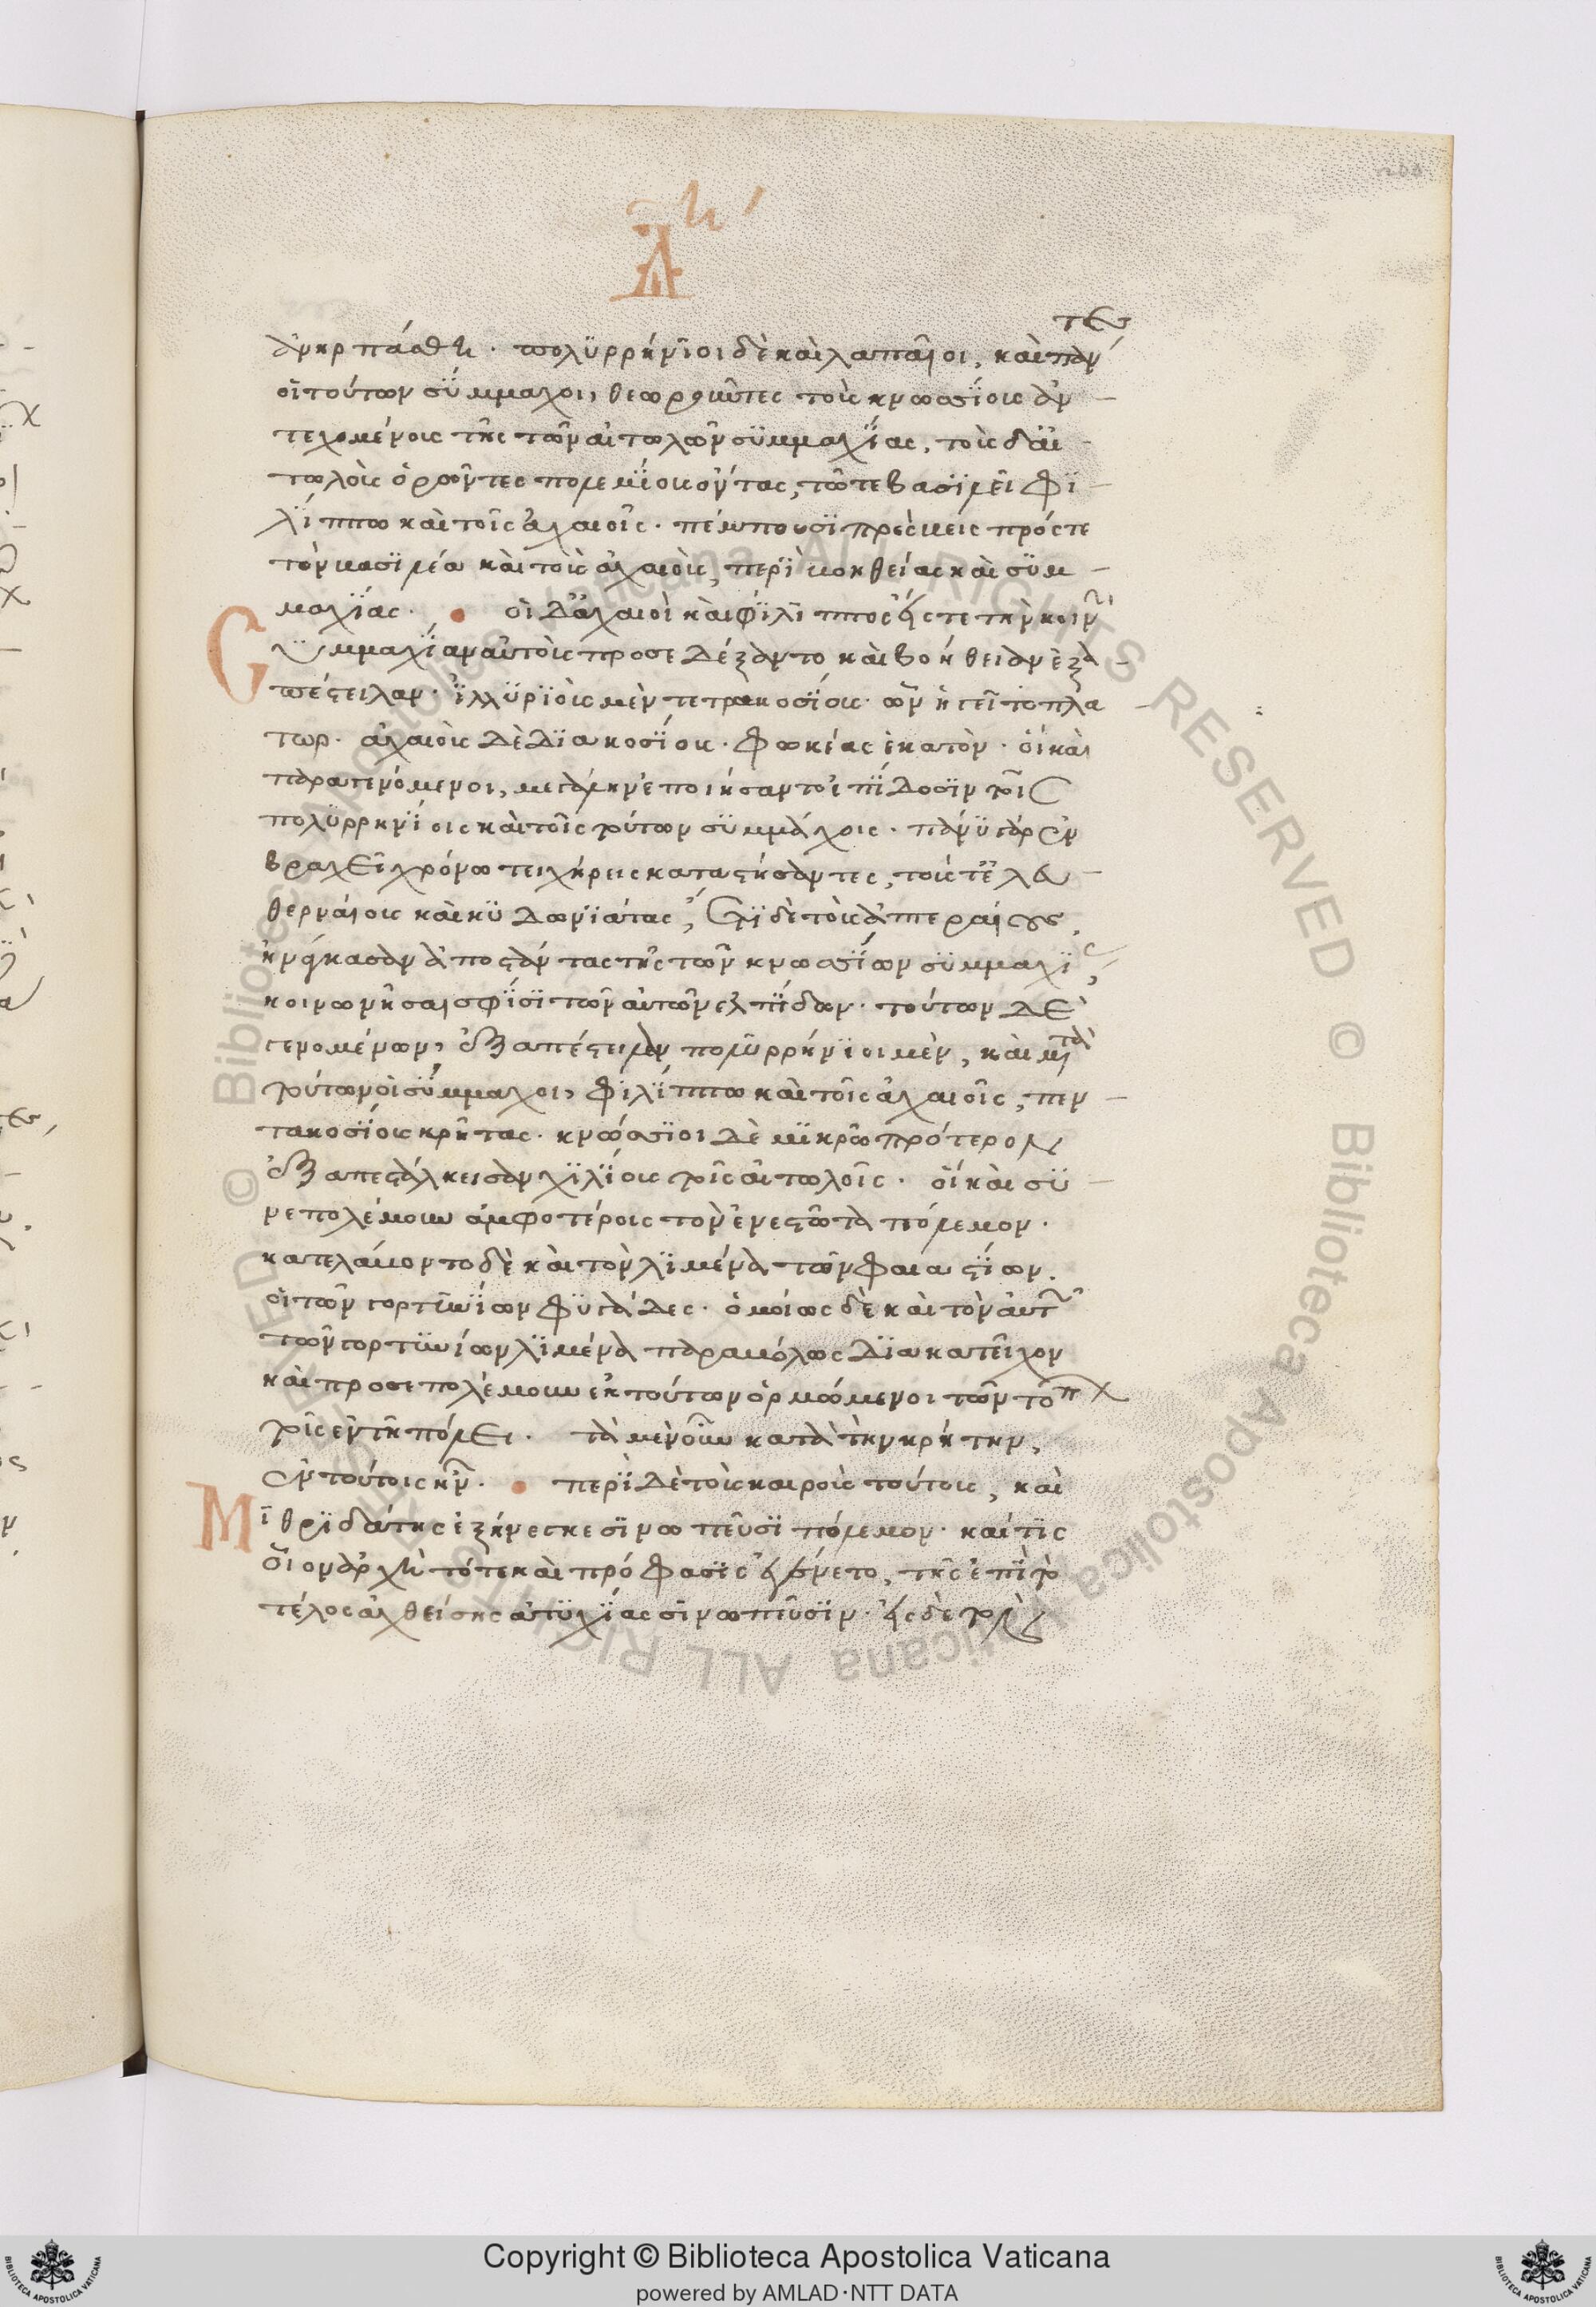 Δη
ἀνηρπάσθη. πολυρρήνιοι δὲ καὶ λαππαῖοι, καὶ πάντες
οἱ τούτων σύμμαχοι, θεωροῦντες τοὺς κνωσίους ἀν
τεχομένους τῆς τῶν αἰτωλῶν συμμαχίας, τοὺς δ' αἰ
τωλοὺς ὁρῶντες πολεμίους ὄντας, τῶ τε βασιλεῖ φι
λίππω καὶ τοῖς ἀχαιοῖς. πέμπουσι πρέσβεις πρός τε
τὸν βασιλέα καὶ τοὺς ἀχαιοὺς, περὶ βοηθείας καὶ συμ
μαχίας. οἱ δ' ἀχαιοὶ καὶ φίλιππος εἴς τε τὴν κοινὴν
συμμαχίαν αὐτοὺς προσεδέξαντο καὶ βοήθειαν ἐξα
πέστειλαν. ἰλλυριοὺς μὲν τετρακοσίους. ὧν ἡγεῖτο πλά
τωρ. ἀχαιοὺς δὲ διακοσίους. φωκέας ἑκατόν. οἳ καὶ
παραγενόμενοι, μεγάλην ἐποιήσαντο ἐπίδοσιν τοῖς
πολυρρηνίοις καὶ τοῖς τούτων συμμάχοις. πάνυ γὰρ ἐν
βραχεῖ χρόνω τειχήρεις καταστήσαντες, τούς τε ἐλευ
θερναίους καὶ κυδωνιάτας, ἔτι δὲ τοὺς ἀπτεραίους,
ἠνάγκασαν ἀποστάντας τῆς τῶν κνωσίων συμμαχίας,
κοινωνῆσαι σφίσι τῶν αὐτῶν ἐλπίδων. τούτων δὲ
γενομένων, ἐξαπέστειλαν πολυρρήνιοι μὲν, καὶ μετὰ
τούτων οἱ σύμμαχοι, φιλίππω καὶ τοῖς ἀχαιοῖς, πεν
τακοσίους κρῆτας. κνώσιοι δὲ μικρῶ πρότερον
ἐξαπεστάλκεισαν χιλίους τοῖς αἰτωλοῖς. οἳ καὶ συ
νεπολέμουν ἀμφοτέροις τὸν ἐνεστῶτα πόλεμον.
κατελάβοντο δὲ καὶ τὸν λιμένα τῶν φαιστίων.
οἱ τῶν γορτυνίων φυγάδες. ὁμοίως δὲ καὶ τὸν αὐτῶν
τῶν γορτυνίων λιμένα παραβόλως διακατεῖχον
καὶ προσεπολέμουν ἐκ τούτων ὁρμώμενοι τῶν τόπων
τοῖς ἐν τῆ πόλει. τὰ μὲν οὖν κατὰ τὴν κρήτην,
ἐν τούτοις ἦν. περὶ δὲ τοὺς καιροὺς τούτους, καὶ
Μιθριδάτης ἐξήνεγκε σινωπεῦσι πόλεμον. καί τις
οἷον ἀρχὴ τότε καὶ πρόφασις ἐγένετο, τῆς ἐπὶ τὸ
τέλος ἀχθείσης ἀτυχίας σινωπεῦσιν. εἰς δὲ τὸν